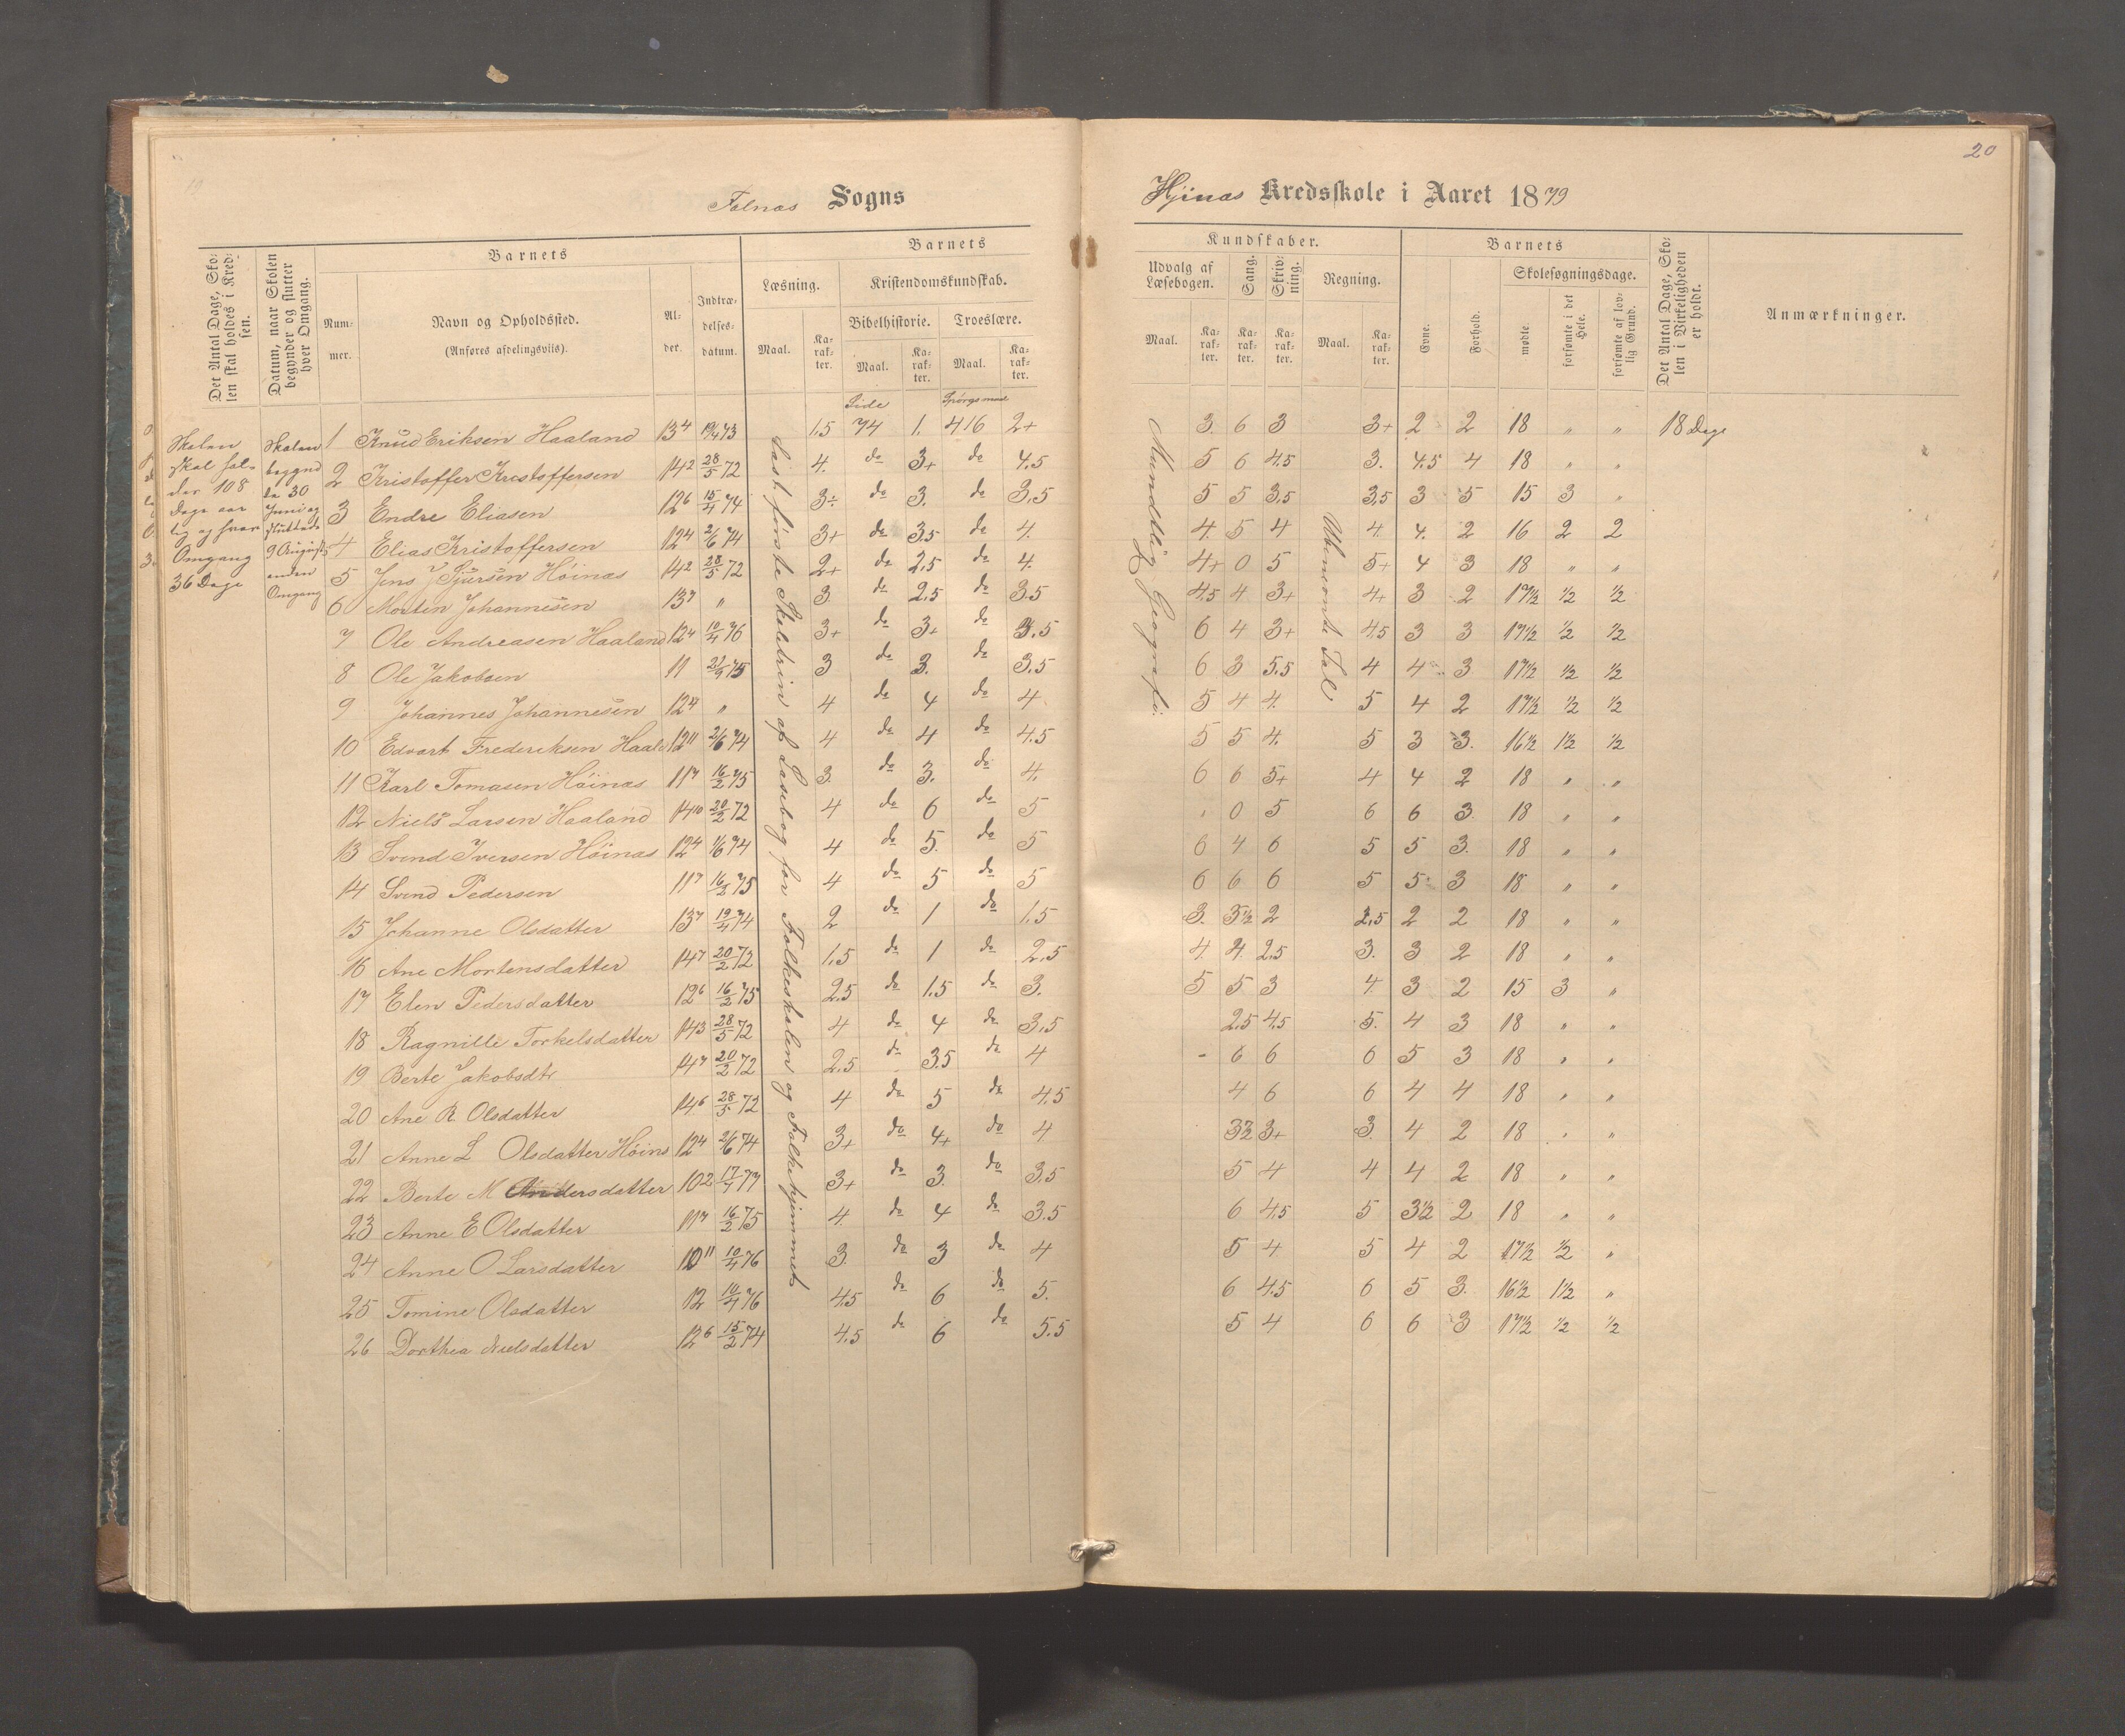 20
Falnæs Sogns
Hjinæs Kredsskole i Aaret 1879
Det Antal Dage, Skolen skal holdes i Kredsen.
Datum, naar Skolen begynder og slutter hver Omgang.
Barnets
Nummer.
Navn og Opholdssted.
(Anføres afdelingsviis).
Alder.
Indtrædelsesdatum.
Barnets
Læsning.
Maal.
Karakter.
Kristendomskundskab.
Bibelhistorie.
Troeslære.
Maal.
Karakter.
Maal.
Karakter.
Kundskaber.
Udvalg af Læsebogen.
Maal.
Karakter.
Sang.
Karakter.
Skrivning.
Karakter.
Regning.
Maal.
Karakter.
Barnets
Evne.
Forhold.
Skolesøgningsdage.
mødte.
forsømte i det Hele.
forsømte af lovlig Grund.
Det Antal Dage, Skolen i Virkeligheden er holdt.
Anmærkninger.
Skolen
skal hol-
des 108
Dage aar
lig og hver
Omgang
36 Dage
Skolen
begynd
te 30
Juni og
sluttede
9 August
anden
Omgang
Side
Spørgsmaal
Læst første Skoletrin af Læsebog for Folkeskolen og Folkehjemmet
Mundtlig Geografi
Ubenævnte Tal
1 Knud Eriksen Haaland 13 4 19/4 73 1.5 74 1. 416 2+ 3. 6 3 3+ 2 2 18 " " 18 Dage
2 Kristoffer Kristoffersen 14 2 28/5 72 4. do 3+ do 4.5 5 6 4.5 3. 4.5 4 18 " "
3 Endre Eliasen 12 6 15/4 74 3÷ do 3. do 3.5 5 5 3.5 3,5 3 5 15 3 "
4 Elias Kristoffersen 12 4 2/6 74 3+ do 3.5 do 4. 4. 5 4 4. 4. 2 16 2 2
5 Jens J Sjursen Høinæs 14 2 28/5 72 2+ do 2.5 do 4. 4+ 0 5 5+ 4 3 18 " "
6 Morten Johannesen 13 7 " 3. do 2.5 do 3.5 4.5 4 3+ 4+ 3 2 17½ ½ ½
7 Ole Andreasen Haaland 12 4 10/4 76 3+ do 3+ do 3.5 6 4 3+ 4.5 3 3 17½ ½ ½
8 Ole Jakobsen 11 21/9 75 3 do 3. do 3.5 6 3 5.5 4 4 3 17½ ½ ½
9 Johannes Johannesen 12 4 " 4 do 4 do 4 5 4 4. 5 4 2 17½ ½ ½
10 Edvart Frederiksen Haal 12 11 2/6 74 4 do 4 do 4.5 5 5 4. 5 3 3. 16½ 1½ ½
11 Karl Tomasen Høinæs 11 7 16/2 75 3. do 3. do 4. 6 6 5+ 4 4 2 18 " "
12 Niels Larsen Haaland 14 10 20/2 72 4 do 6 do 5 0 5 6 6 3 18 " "
13 Svend Iversen Høinæs 12 4 1/6 74 4 do 5. do 5 6 4 6 5 5 3. 18 " "
14 Svend Pedersen 11 7 16/2 75 4 do 5 do 5 6 6 6 5 5 3 18 " "
15 Johanne Olsdatter 13 7 19/4 74 2 do 1 do 1.5 3. 3½ 2 2,5 2 2 18 " "
16 Ane Mortensdatter 14 7 20/2 72 1.5 do 1 do 2.5 4. 4. 2.5 3. 3 2 18 " "
17 Elen Pedersdatter 12 6 16/2 75 2.5 do 1.5 do 3. 5 5 3 4. 3 2 15 3 "
18 Ragnille Torkelsdatter 14 3 28/5 72 4 do 4 do 3.5 2.5 4.5 5. 4 3 18 " "
19 Berte Jakobsdtr 14 7 20/2 72 2.5 do 3.5 do 4 - 6 6 6 5 3 18 " "
20 Ane R Olsdatter 14 6 28/5 72 4 do 5 do 4.5 4 6 6 4 4 18 " "
21 Anne L Olsdatter Høins 12 4 2/6 74 3+ do 4+ do 4 3½ 3+ 3. 4 2 18 " "
22 Berte M Andersdatter 10 2 17/4 77 3+ do 3. do 3.5 5 4 4 4 2 18 " "
23 Anne E Olsdatter 11 7 16/2 75 4. do 4 do 3.5 6 4.5 5 3½ 2 18 " "
24 Anne O Larsdatter 10 11 10/4 76 3. do 3 do 4 5 4 5 4 2 17½ ½ "
25 Tomine Olsdatter 12 10/4 76 4.5 do 6 do 5. 6 4.5 6 5 3. 16½ 1½ "
26 Dorthea Nielsdatter 12 6 15/2 74 4.5 do 6 do 5.5 5 4 6 6 3 17½ ½ ½